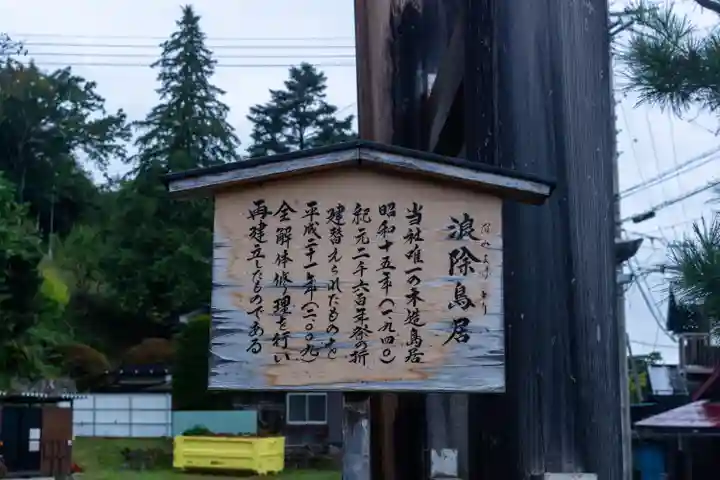 浪除鳥居
なみよけとりい
当社唯一の木造鳥居
昭和十五年(一九四〇)
紀元二千六百年祭の折
建替えられたものを
平成二十一年(二〇〇九)
全解体修理を行い
再建立したものである